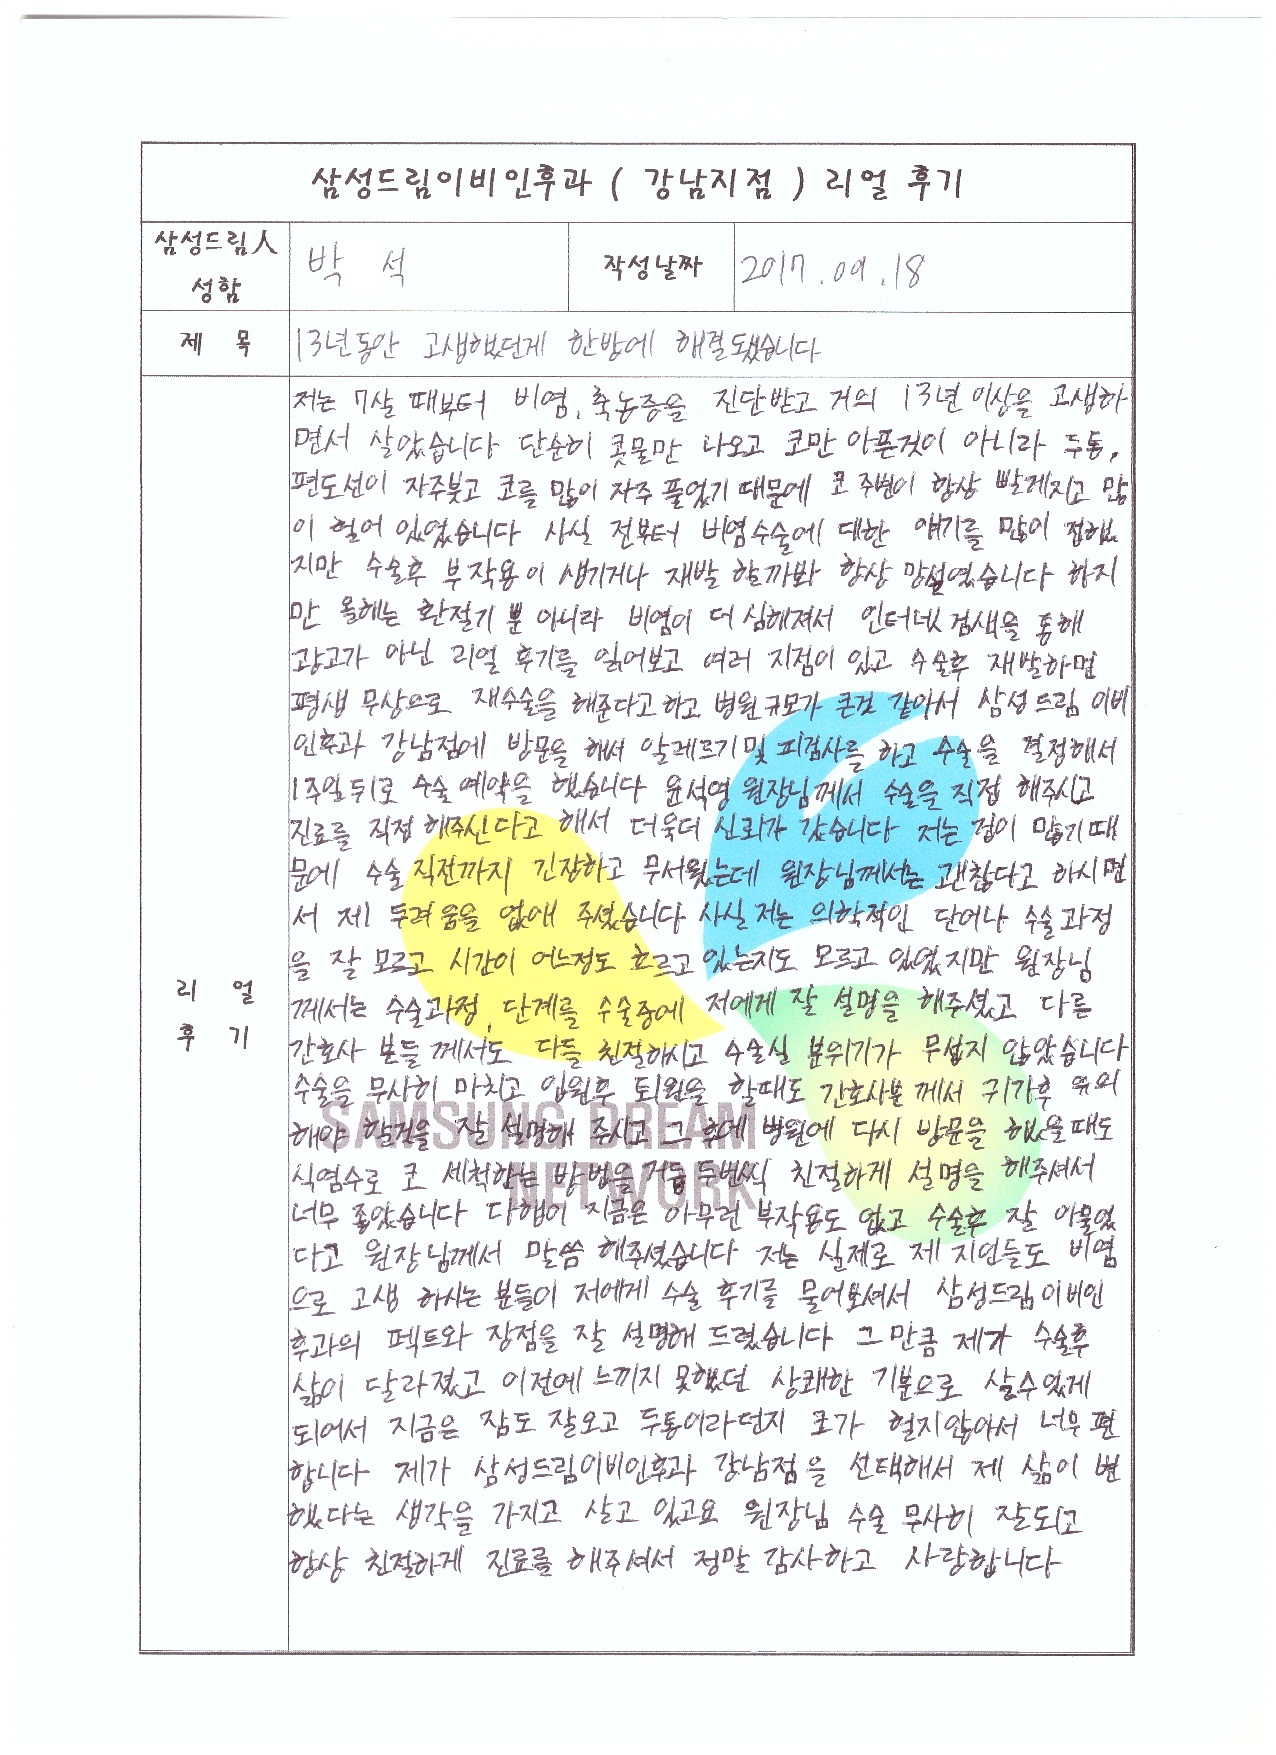 삼성드림이비인후과 ( 강남지점 ) 리얼 후기
삼성드림人
성함
박 석
작성날짜
2017.09.18
제 목
13년동안 고생했던게 한방에 해결됐습니다
리 얼
후 기
저는 7살 때부터 비염, 축농증을 진단받고 거의 13년이상을 고생하
면서 살았습니다 단순히 콧물만 나오고 코만 아픈것이 아니라 두통,
편도선이 자주붓고 코를 많이 자주 풀었기 때문에 코 주변이 항상 빨게지고 많
이 헐어 있었습니다 사실 전부터 비염수술에 대한 얘기를 많이 접했
지만 수술후 부작용이 생기거나 재발 할까봐 항상 망설였습니다 하지
만 올해는 환절기 뿐 아니라 비염이 더 심해져서 인터넷 검색을 통해
광고가 아닌 리얼 후기를 읽어보고 여러 지점이 있고 수술후 재발하면
평생 무상으로 재수술을 해준다고 하고 병원규모가 큰것 같아서 삼성드림 이비
인후과 강남점에 방문을 해서 알레르기및 피검사를 하고 수술을 결정해서
1주일뒤로 수술 예약을 했습니다 윤석영 원장님께서 수술을 직접 해주시고
진료를 직접 해주신다고 해서 더욱더 신뢰가 갔습니다 저는 겁이 많기때
문에 수술 직전까지 긴장하고 무서웠는데 원장님께서는 괜찮다고 하시면
서 제 두려움을 없애 주셨습니다 사실 저는 의학적인 단어나 수술과정
을 잘 모르고 시간이 어느정도 흐르고 있는지도 모르고 있었지만 원장님
께서는 수술과정, 단계를 수술중에 저에게 잘 설명을 해주셨고 다른
간호사 분들 께서도 다들 친절하시고 수술실 분위기가 무섭지 않았습니다
수술을 무사히 마치고 입원후 퇴원을 할때도 간호사분 께서 귀가후 유의
해야 할것을 잘 설명해 주시고 그 후에 병원에 다시 방문을 했을때도
식염수로 코 세척하는 방법을 거듭 두번씩 친절하게 설명을 해주셔서
너무 좋았습니다 다행이 지금은 아무런 부작용도 없고 수술후 잘 아물었
다고 원장님께서 말씀 해주셨습니다 저는 실제로 제 지인들도 비염
으로 고생 하시는 분들이 저에게 수술 후기를 물어보셔서 삼성드림이비인
후과의 펙트와 장점을 잘 설명해 드렸습니다 그만큼 제가 수술후
삶이 달라졌고 이전에 느끼지 못했던 상쾌한 기분으로 살수있게
되어서 지금은 잠도 잘오고 두통이라던지 코가 헐지않아서 너무 편
합니다 제가 삼성드림이비인후과 강남점을 선택해서 제 삶이 변
했다는 생각을 가지고 살고 있고요 원장님 수술 무사히 잘되고
항상 친절하게 진료를 해주셔서 정말 감사하고 사랑합니다
SAMSUNG DREAM
NETWORK